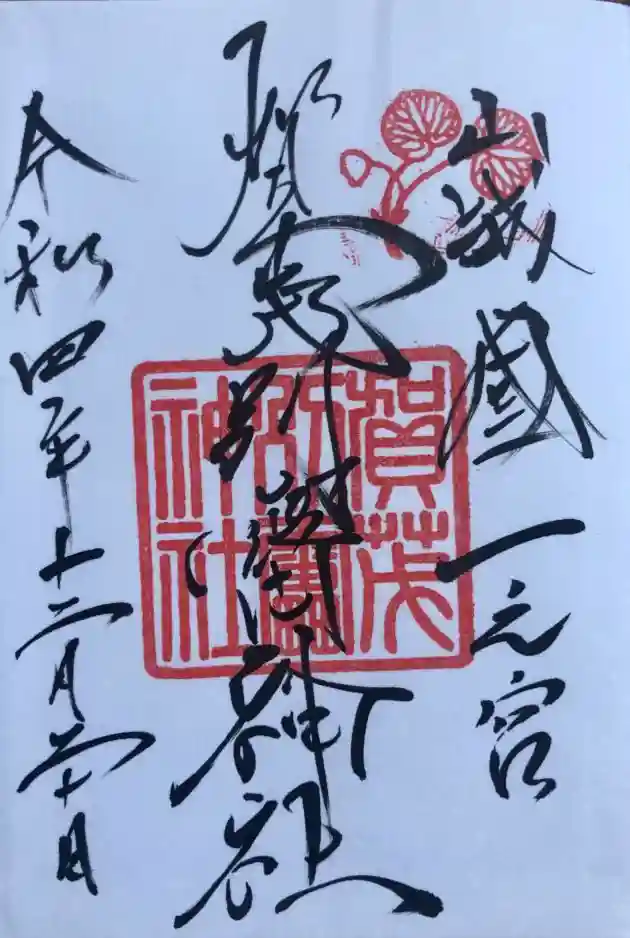 山城國一之宮
賀茂別雷神社
令和四年十二月二十日
賀茂
別雷
神社